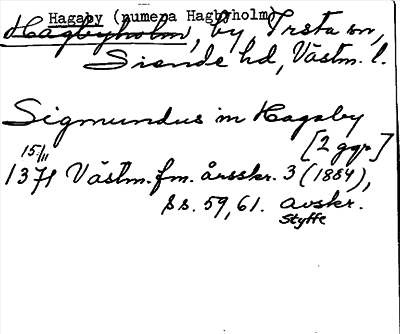 Hagaby (numera Hagbyholm)
Hagbyholm, by, Irsta sn,
Siende hd, Västm. l.
Sigmundus in Hagaby
[2 ggr]
15/11
1371 Västm. fm. årsskr. 3 (1884),
ss. 59, 61. avskr.
Styffe